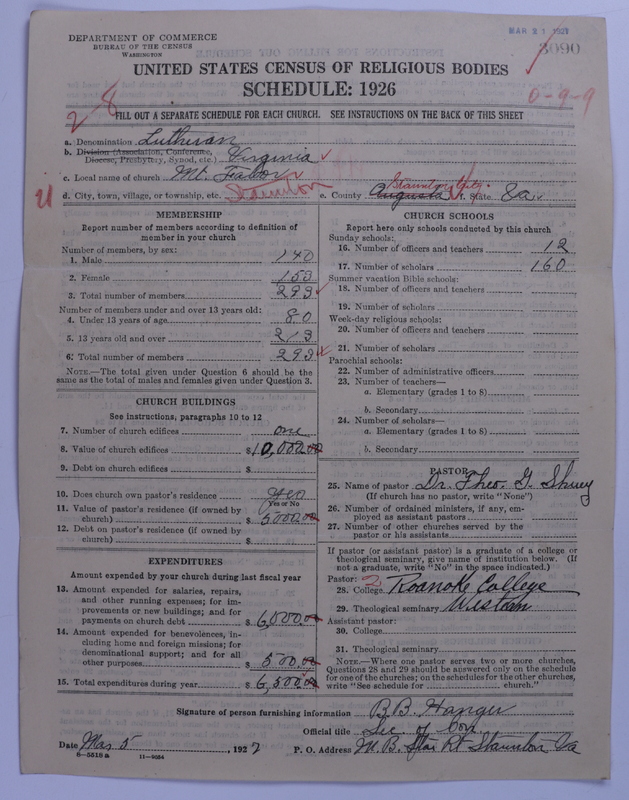 MAR 21 1927
DEPARTMENT OF COMMERCE
BUREAU OF THE CENSUS
WASHINGTON
3090
UNITED STATES CENSUS OF RELIGIOUS BODIES
SCHEDULE: 1926
0-9-9
2-8
FILL OUT A SEPARATE SCHEDULE FOR EACH CHURCH. SEE INSTRUCTIONS ON THE BACK OF THIS SHEET
a. Denomination Lutheran
b. Division (Association, Conference, Diocese, Presbytery, Synod, etc.) Virginia
c. Local name of church Mt. Tabor
d. City, town, village, or township, etc. Staunton e. County Augusta Staunton City f. State Va
MEMBERSHIP
Report number of members according to definition of
member in your church
Number of members, by sex:
1. Male 140
2. Female 153
3. Total number of members 293
Number of members under and over 13 years old:
4. Under 13 years of age 80
5. 13 years old and over 213
6. Total number of members 293
NOTE.—The total given under Question 6 should be the
same as the total of males and females given under Question 3.
CHURCH BUILDINGS
See instructions, paragraphs 10 to 12
7. Number of church edifices one
8. Value of church edifices $10,000.00
9. Debt on church edifices $
10. Does church own pastor's residence yes
Yes or No
11. Value of pastor's residence (if owned by
church) $5000.00
12. Debt on pastor's residence (if owned by
church) $
EXPENDITURES
Amount expended by your church during last fiscal year
13. Amount expended for salaries, repairs,
and other running expenses; for im-
provements or new buildings; and for
payments on church debt $6,000.00
14. Amount expended for benevolences, in-
cluding home and foreign missions; for
denominational support; and for all
other purposes $500.00
15. Total expenditures during year $6,500.00
CHURCH SCHOOLS
Report here only schools conducted by this church
Sunday schools:
16. Number of officers and teachers 12
17. Number of scholars 160
Summer vacation Bible schools:
18. Number of officers and teachers
19. Number of scholars
Week-day religious schools:
20. Number of officers and teachers
21. Number of scholars
Parochial schools:
22. Number of administrative officers
23. Number of teachers—
a. Elementary (grades 1 to 8)
b. Secondary
24. Number of scholars—
a. Elementary (grades 1 to 8)
b. Secondary
PASTOR
25. Name of pastor Dr. Theo. G. Shuey
(If church has no pastor, write "None")
26. Number of ordained ministers, if any, em-
ployed as assistant pastors
27. Number of other churches served by the
pastor or his assistants
If pastor (or assistant pastor) is a graduate of a college or
theological seminary, give name of institution below. (If
not a graduate, write "No" in the space indicated.)
Pastor: 2
28. College Roanoke College
29. Theological seminary Western
Assistant pastor:
30. College
31. Theological seminary
NOTE.—Where one pastor serves two or more churches,
Questions 28 and 29 should be answered only on the schedule
for one of the churches; on the schedules for the other churches,
write "See schedule for church."
Signature of person furnishing information B.B. Hanger
Official title Sec. of Coun
Date Mar 5, 1927 P. O. Address M. B. Star Rt Staunton Va
8-5518 a 11-9034